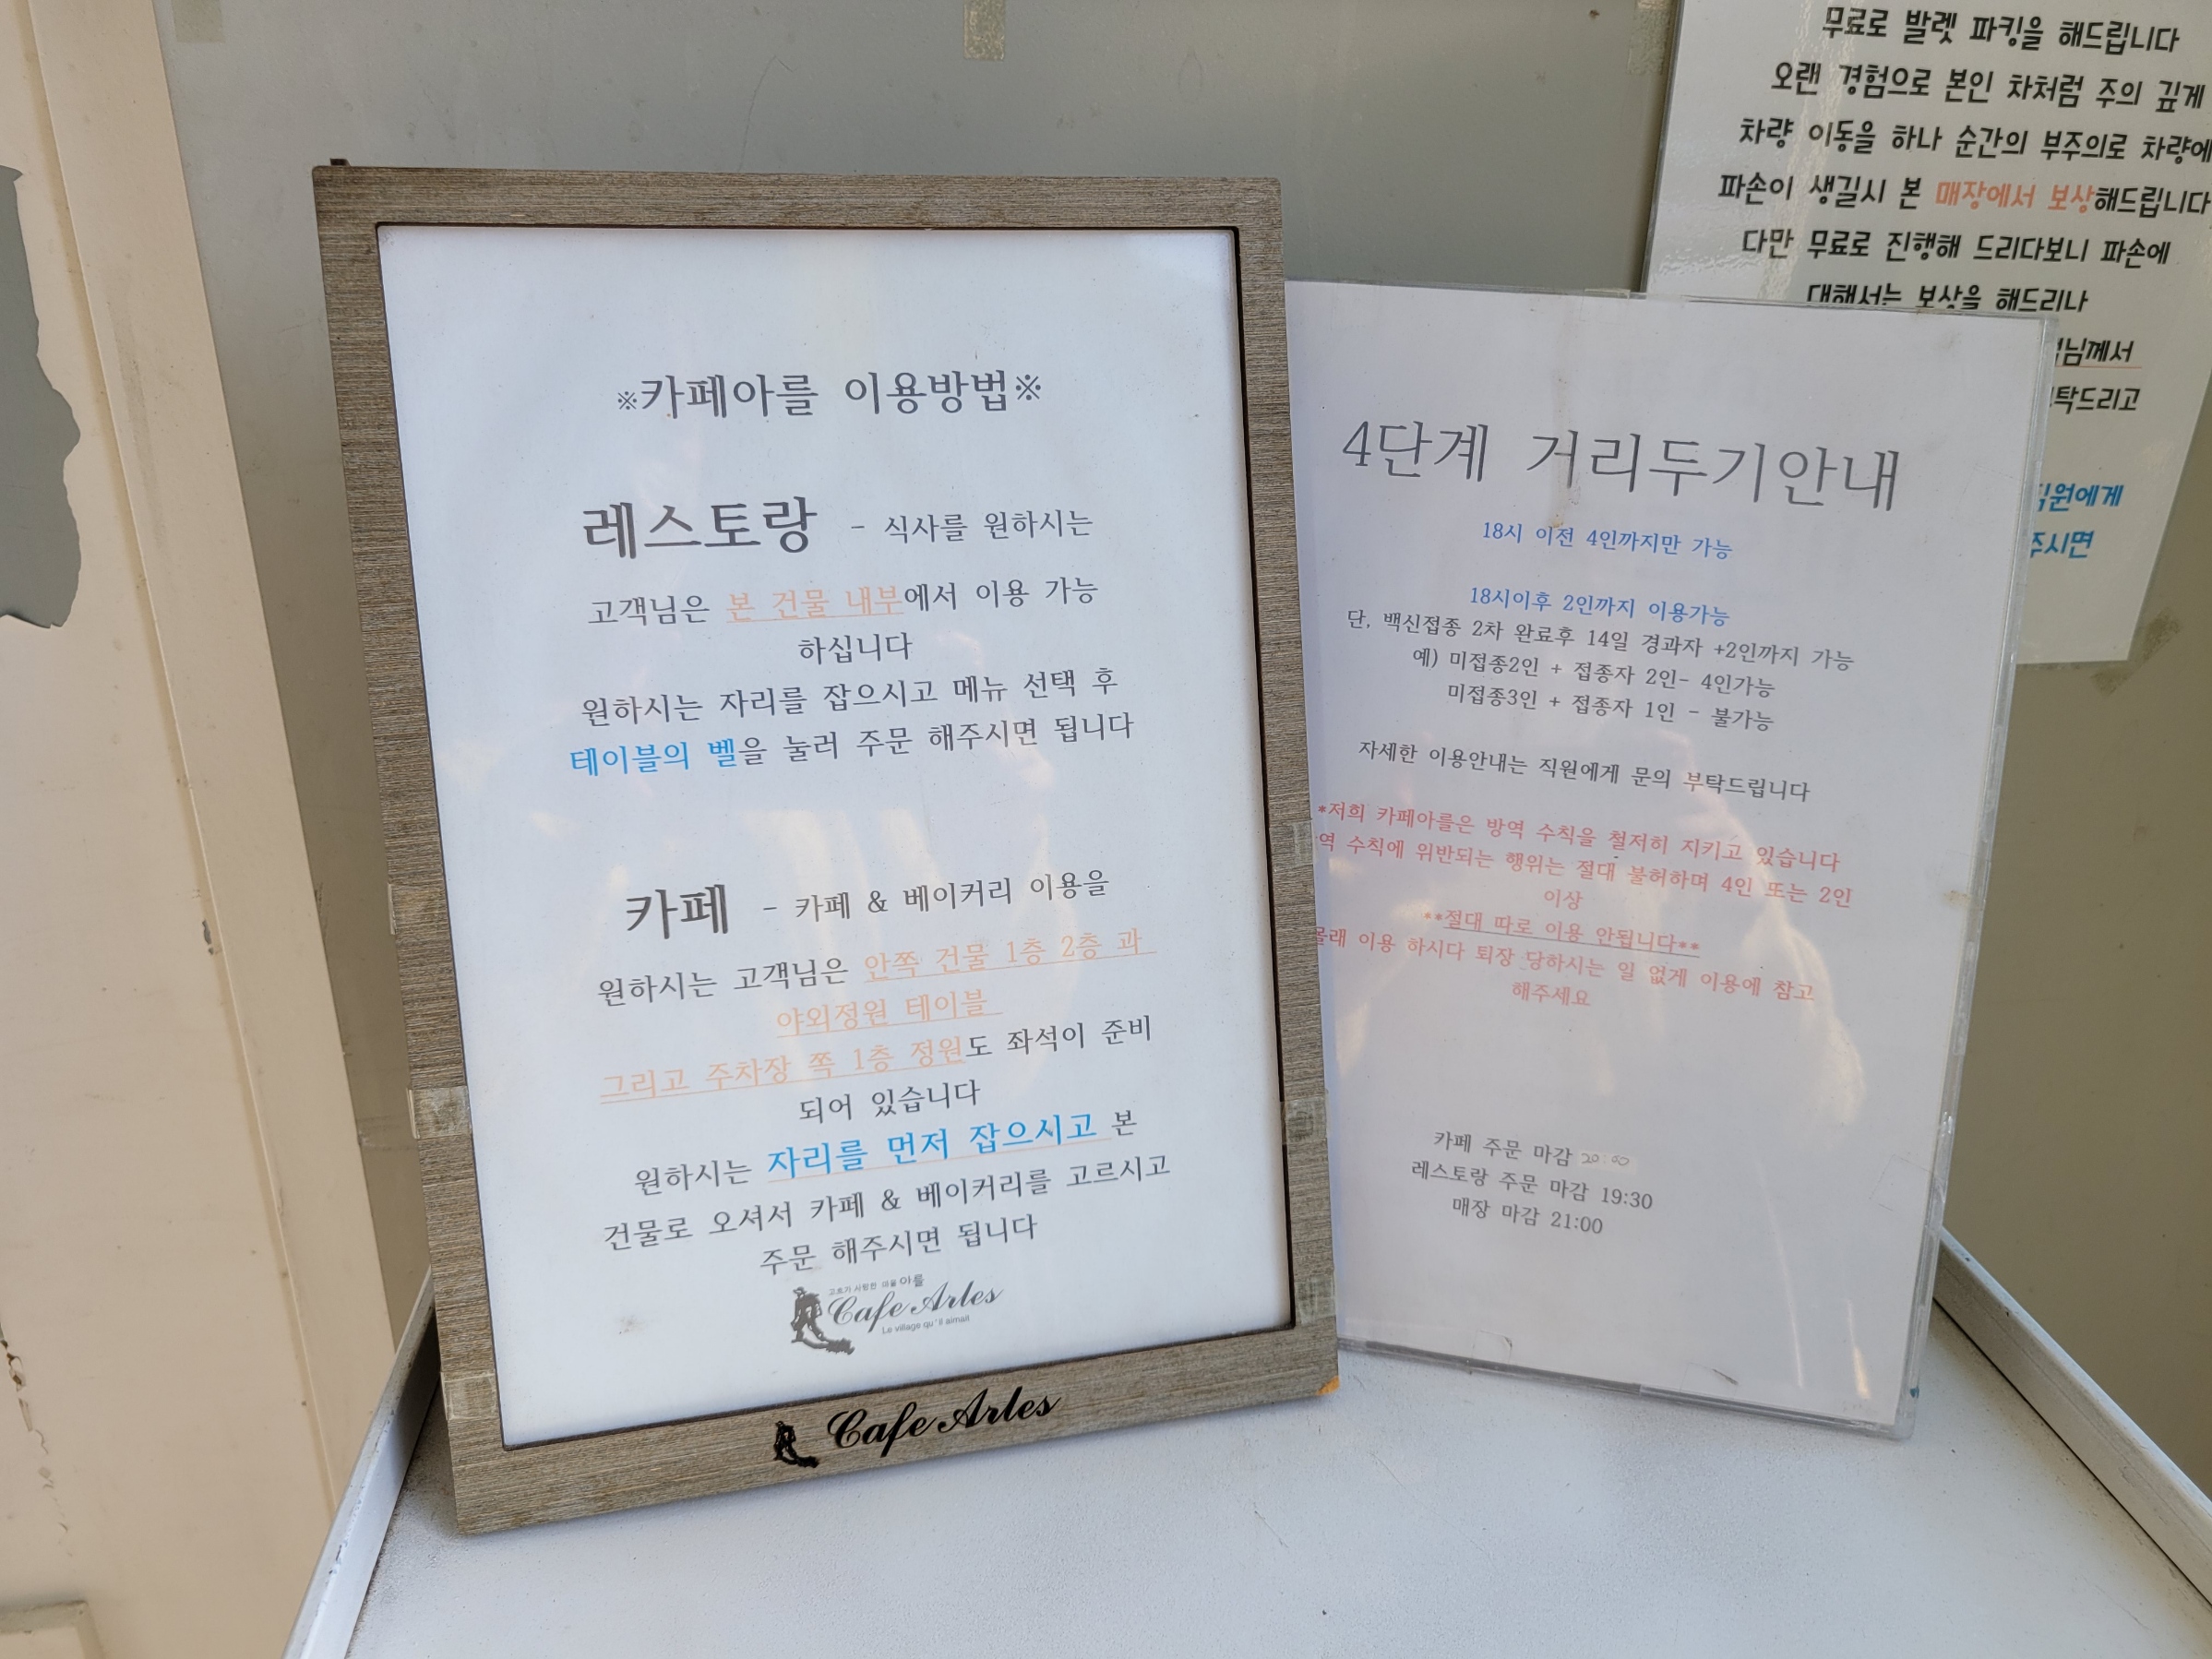 ※카페아를 이용방법※
레스토랑 - 식사를 원하시는
고객님은 본 건물 내부에서 이용 가능
하십니다
원하시는 자리를 잡으시고 메뉴 선택 후
테이블의 벨을 눌러 주문 해주시면 됩니다
카페 - 카페 & 베이커리 이용을
원하시는 고객님은 안쪽 건물 1층 2층 과
야외정원 테이블
그리고 주차장 쪽 1층 정원도 좌석이 준비
되어 있습니다
원하시는 자리를 먼저 잡으시고 본
건물로 오셔서 카페 & 베이커리를 고르시고
주문 해주시면 됩니다
고흐가 사랑한 마을 아를
Cafe Arles
Le village qu'il aimait
Cafe Arles
4단계 거리두기안내
18시 이전 4인까지만 가능
18시이후 2인까지 이용가능
단, 백신접종 2차 완료후 14일 경과자 +2인까지 가능
예) 미접종2인 + 접종자 2인- 4인가능
미접종3인 + 접종자 1인 - 불가능
자세한 이용안내는 직원에게 문의 부탁드립니다
*저희 카페아를은 방역 수칙을 철저히 지키고 있습니다
역 수칙에 위반되는 행위는 절대 불허하며 4인 또는 2인
이상
**절대 따로 이용 안됩니다**
몰래 이용 하시다 퇴장 당하시는 일 없게 이용에 참고
해주세요
카페 주문 마감 20:00
레스토랑 주문 마감 19:30
매장 마감 21:00
무료로 발렛 파킹을 해드립니다
오랜 경험으로 본인 차처럼 주의 깊게
차량 이동을 하나 순간의 부주의로 차량에
파손이 생길시 본 매장에서 보상해드립니다
다만 무료로 진행해 드리다보니 파손에
대해서는 보상을 해드리나
님께서
탁드리고
직원에게
주시면